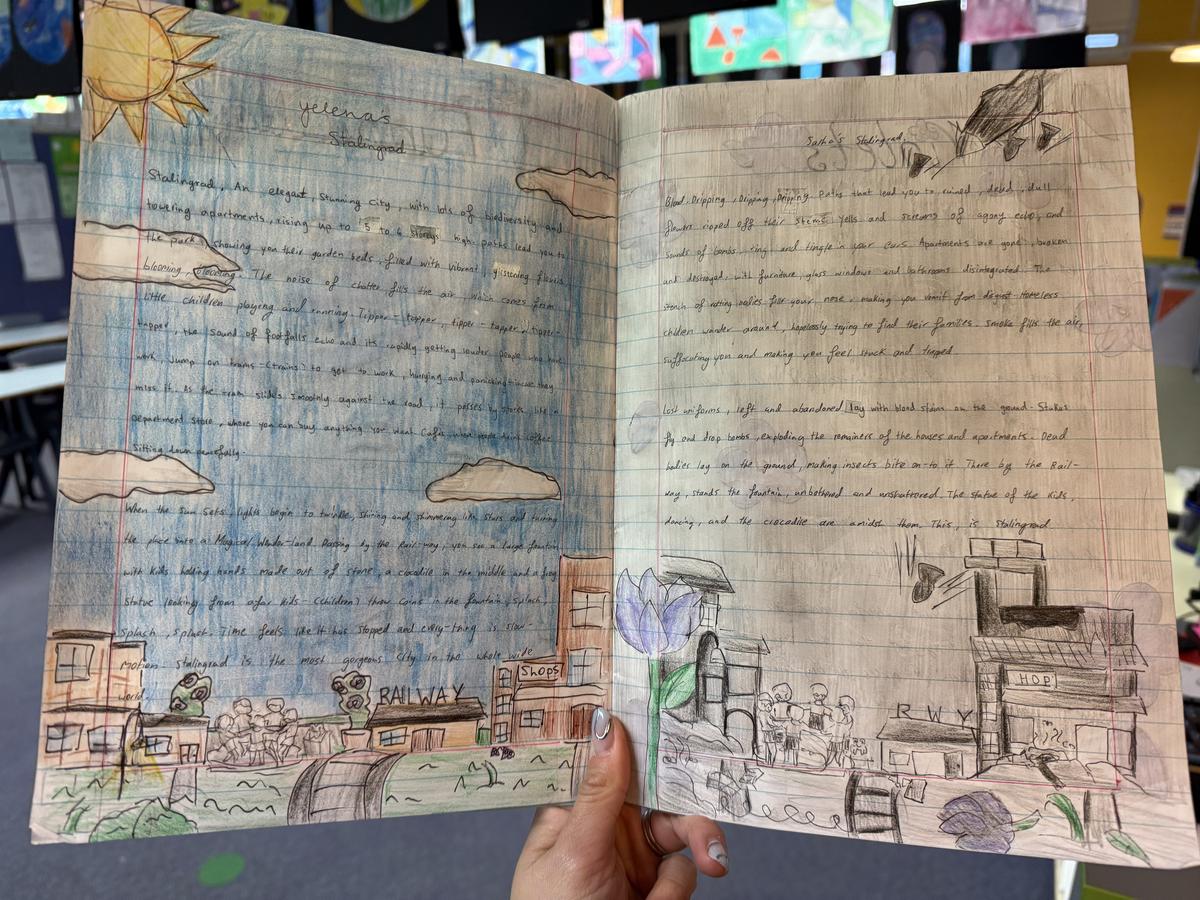 yelena's
Stalingrad
Stalingrad, An elegant, stunning city, with lots of biodiversity and
towering apartments, rising up to 5 to 6 storeys high. paths lead you to
the park, showing you their garden beds, filled with vibrant, glistening flowers
blooming, blooming. The noise of chatter fills the air, which comes from
little children playing and running. Tipper-tapper, tipper-tapper, tipper-
tapper, the sound of footfalls echo and its rapidly getting louder. people who have
work jump on trams-(trains) to get to work, hurrying and panicking incase they
miss it. As the tram slides smoothly against the road, it passes by stores, like a
department store, where you can buy anything you want. Cafes, where people drink coffee
sitting down peacefully.
When the sun sets, lights begin to twinkle, shining and shimmering like stars and turning
the place into a Magical Wonder-land. Passing by the Rail-way, you see a large fountain
with kids holding hands made out of stone, a crocodile in the middle and a frog
statue looking from afar. Kids-(children) throw coins in the fountain, splash,
splash, splash. Time feels like it has stopped and every-thing is slow-
motion. Stalingrad is the most gorgeous city in the whole wide
world.
SHOPS
RAILWAY
Sasha's Stalingrad.
Blood. Dripping, Dripping, Dripping. Paths that lead you to, ruined, dead, dull
flowers ripped off their stems. Yells and screams of agony echo, and
sounds of bombs, ring and tingle in your ears. Apartments are gone, broken
and destroyed, with furniture, glass windows and bathrooms disintegrated. The
stench of rotting bodies fill your nose, making you vomit from disgust. Homeless
children wander around, hopelessly trying to find their families. Smoke fills the air,
suffocating you and making you feel stuck and trapped.
Lost uniforms, left and abandoned lay with blood stains on the ground. Stukas
fly and drop bombs, exploding the remainers of the houses and apartments. Dead
bodies lay on the ground, making insects bite on-to it. There by the Rail-
way, stands the fountain, unbothered and unshattered. The statue of the kids,
dancing, and the crocodile are amidst them. This, is Stalingrad
HOP
R WY